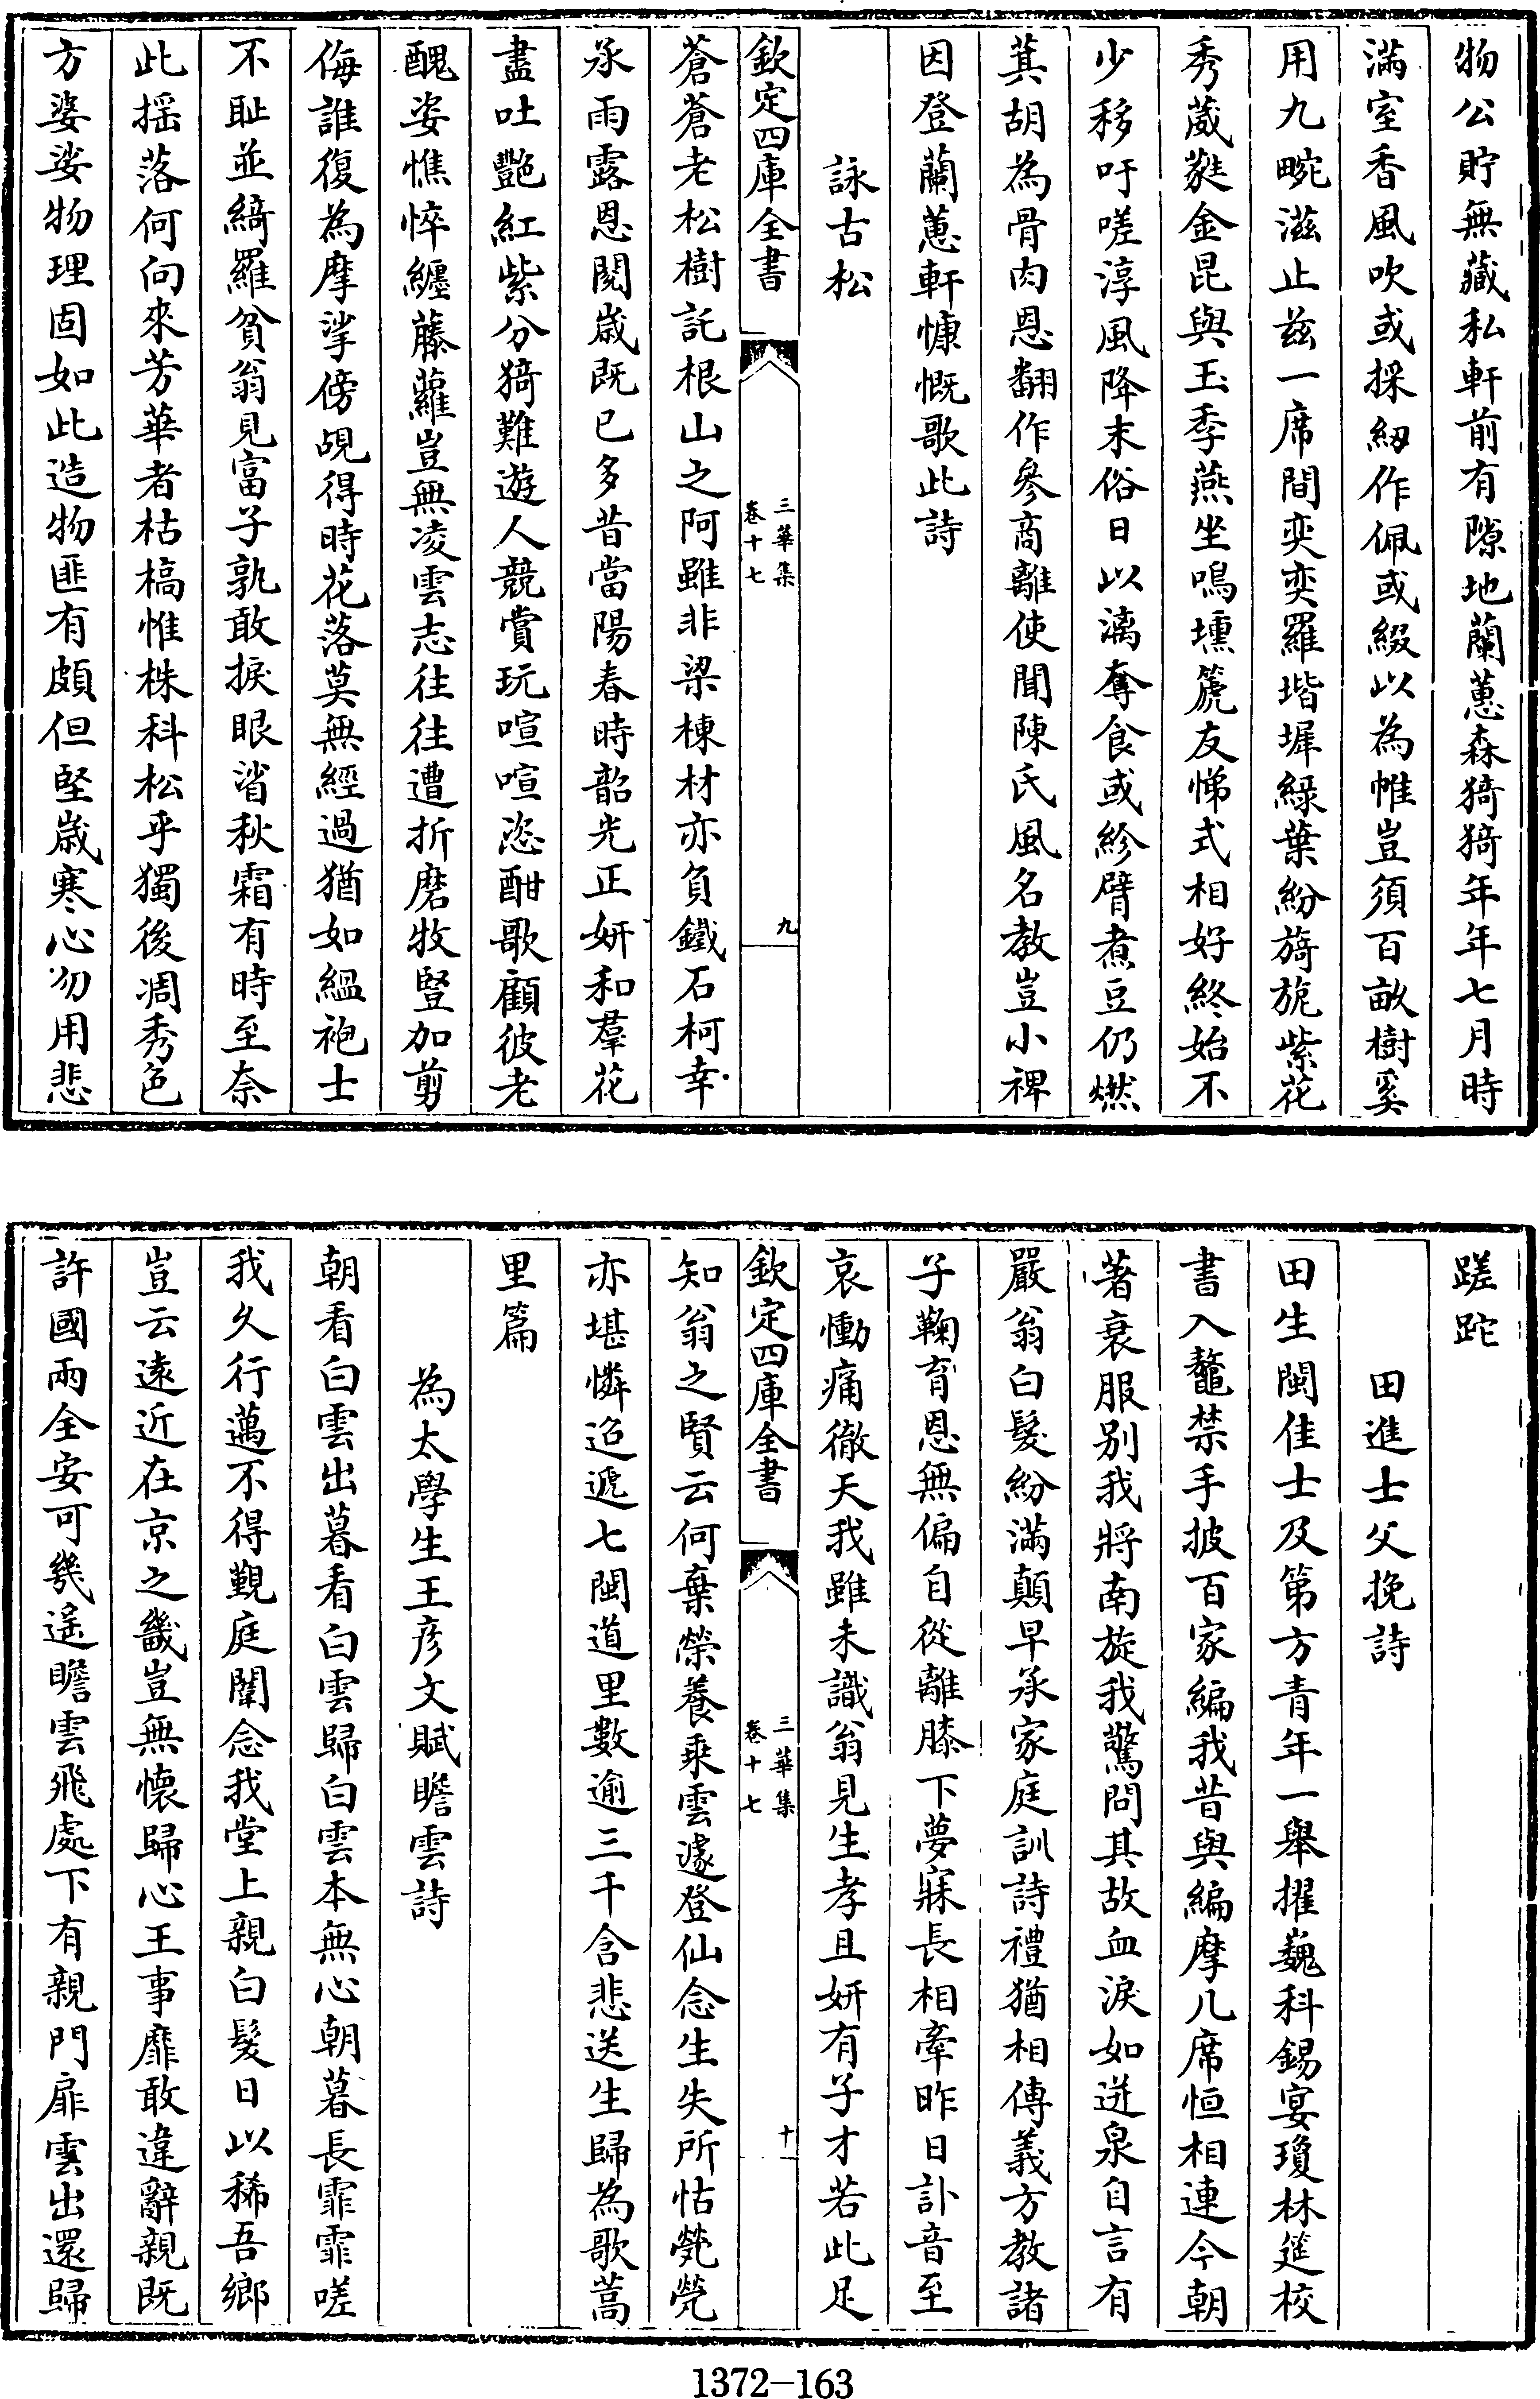 物公貯無藏私軒前有隙地蘭蕙森猗猗年年七月時
滿室香風吹或採紉作佩或綴以為帷豈須百畝樹奚
用九畹滋止兹一席間奕奕羅堦墀綠葉紛旖旎紫花
秀葳蕤金昆與玉季燕坐鳴壎箎友悌式相好終始不
少移吁嗟淳風降末俗日以漓奪食或紾臂煮豆仍燃
萁胡為骨肉恩翻作參商離使聞陳氏風名教豈小裨
因登蘭蕙軒慷慨歌此詩
詠古松
欽定四庫全書
三華集
卷十七
九
蒼蒼老松樹託根山之阿雖非梁棟材亦負鐵石柯幸
承雨露恩閱歲既已多昔當陽春時韶光正妍和羣花
盡吐艷紅紫分猗難遊人競賞玩喧喧恣酣歌顧彼老
醜姿憔悴纏藤蘿豈無凌雲志往往遭折磨牧豎加剪
侮誰復為摩挲傍覘得時花落莫無經過猶如縕袍士
不恥並綺羅貧翁見富子孰敢捩眼㳙秋霜有時至奈
此揺落何向來芳華者枯槁惟株科松乎獨後凋秀色
方婆娑物理固如此造物匪有頗但堅歲寒心勿用悲
蹉跎
田進士父挽詩
田生閩佳士及第方青年一舉擢巍科錫宴瓊林筵校
書入鼇禁手披百家編我昔與編摩几席恒相連今朝
著衰服別我將南旋我驚問其故血淚如迸泉自言有
嚴翁白髮紛滿顛早承家庭訓詩禮猶相傳義方教諸
子鞠育恩無偏自從離膝下夢寐長相牽昨日訃音至
哀慟痛徹天我雖未識翁見生孝且妍有子才若此足
欽定四庫全書
三華集
卷十七
十
知翁之賢云何棄榮養乘雲遽登仙念生失所怙煢煢
亦堪憐迢遞七閩道里數逾三千含悲送生歸為歌蒿
里篇
為太學生王彦文賦瞻雲詩
朝看白雲出暮看白雲歸白雲本無心朝暮長霏霏嗟
我久行邁不得覲庭闈念我堂上親白髮日以稀吾鄉
豈云遠近在京之畿豈無懷歸心王事靡敢違辭親既
許國兩全安可幾遥瞻雲飛處下有親門扉雲出還歸
1372-163